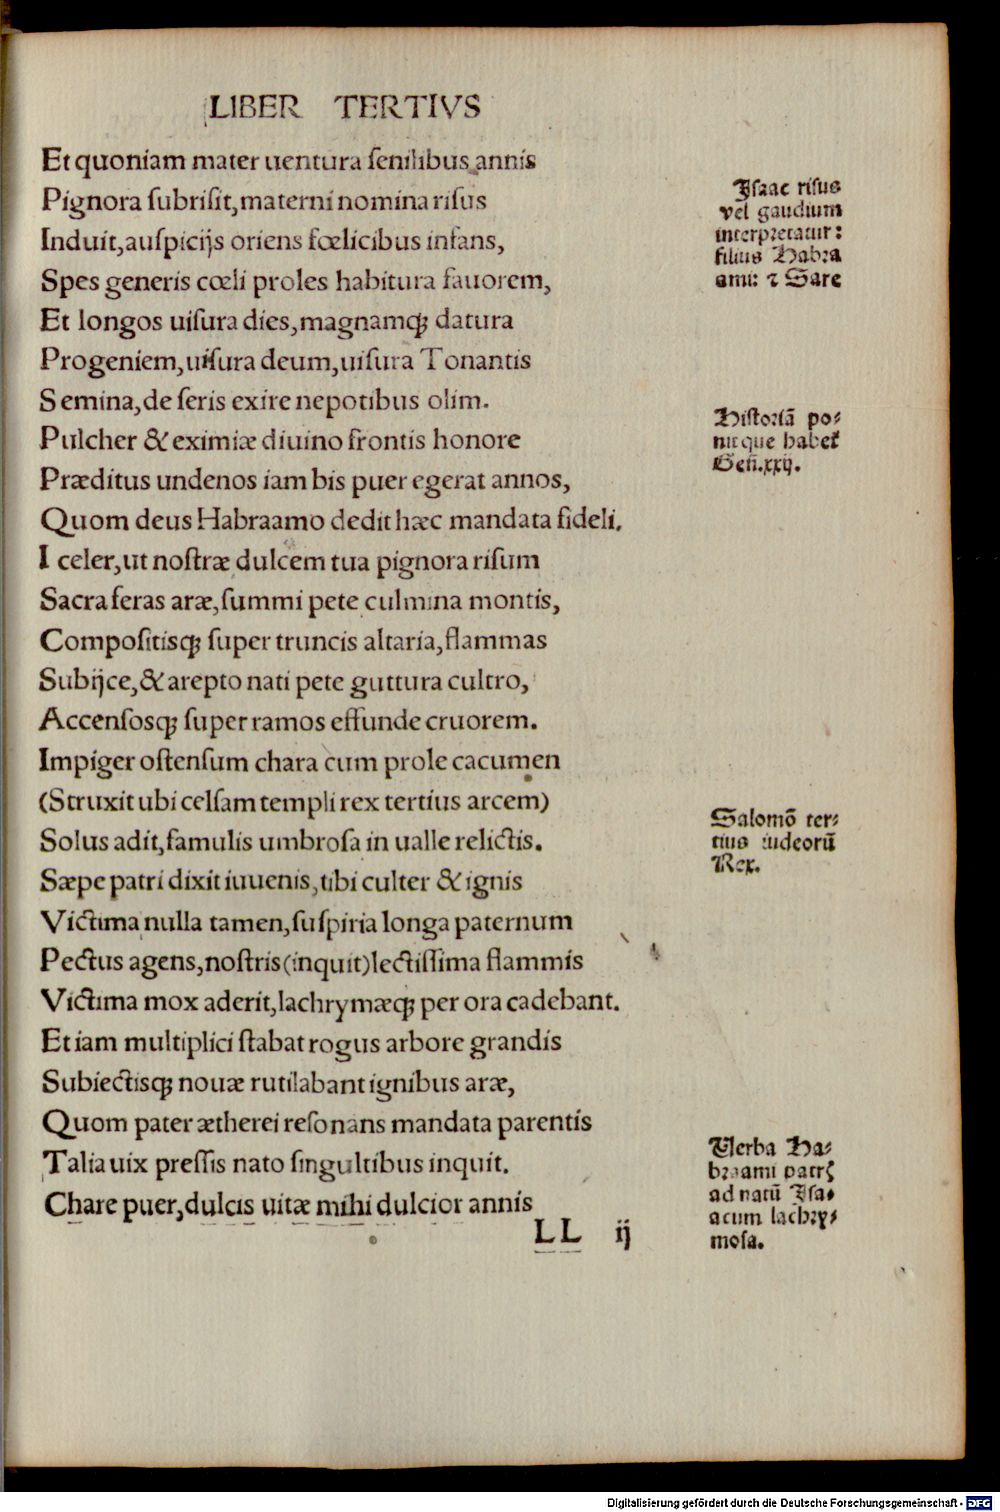 LIBER TERTIVS
Et quoniam mater uentura senilibus annis
Pignora subrisit, materni nomina risus
Induit, auspicijs oriens fœlicibus infans,
Spes generis cœli proles habitura fauorem,
Et longos uisura dies, magnamqꝫ datura
Progeniem, uisura deum, uisura Tonantis
Semina, de seris exire nepotibus olim.
Pulcher & eximiæ diuino frontis honore
Præditus undenos iam bis puer egerat annos,
Quom deus Habraamo dedit hæc mandata fideli.
I celer, ut nostræ dulcem tua pignora risum
Sacra feras aræ, summi pete culmina montis,
Compositisqꝫ super truncis altaria, flammas
Subijce, & arepto nati pete guttura cultro,
Accensosqꝫ super ramos effunde cruorem.
Impiger ostensum chara cum prole cacumen
(Struxit ubi celsam templi rex tertius arcem)
Solus adit, famulis umbrosa in ualle relictis.
Sæpe patri dixit iuuenis, tibi culter & ignis
Victima nulla tamen, suspiria longa paternum
Pectus agens, nostris (inquit) lectissima flammis
Victima mox aderit, lachrymæqꝫ per ora cadebant.
Et iam multiplici stabat rogus arbore grandis
Subiectisqꝫ nouæ rutilabant ignibus aræ,
Quom pater ætherei resonans mandata parentis
Talia uix pressis nato singultibus inquit.
Chare puer, dulcis uitæ mihi dulcior annis
LL ij
Isaac risus
vel gaudium
interpretatur:
filius Habra
ami: ⁊ Sare
Historiā po⸗
nit que habet᷑
Geñ.xxij.
Salomō ter⸗
tius iudeorū
Rex.
Verba Ha⸗
braami patrꝭ
ad natū Isa⸗
acum lachry⸗
mosa.
Digitalisierung gefördert durch die Deutsche Forschungsgemeinschaft - DFG